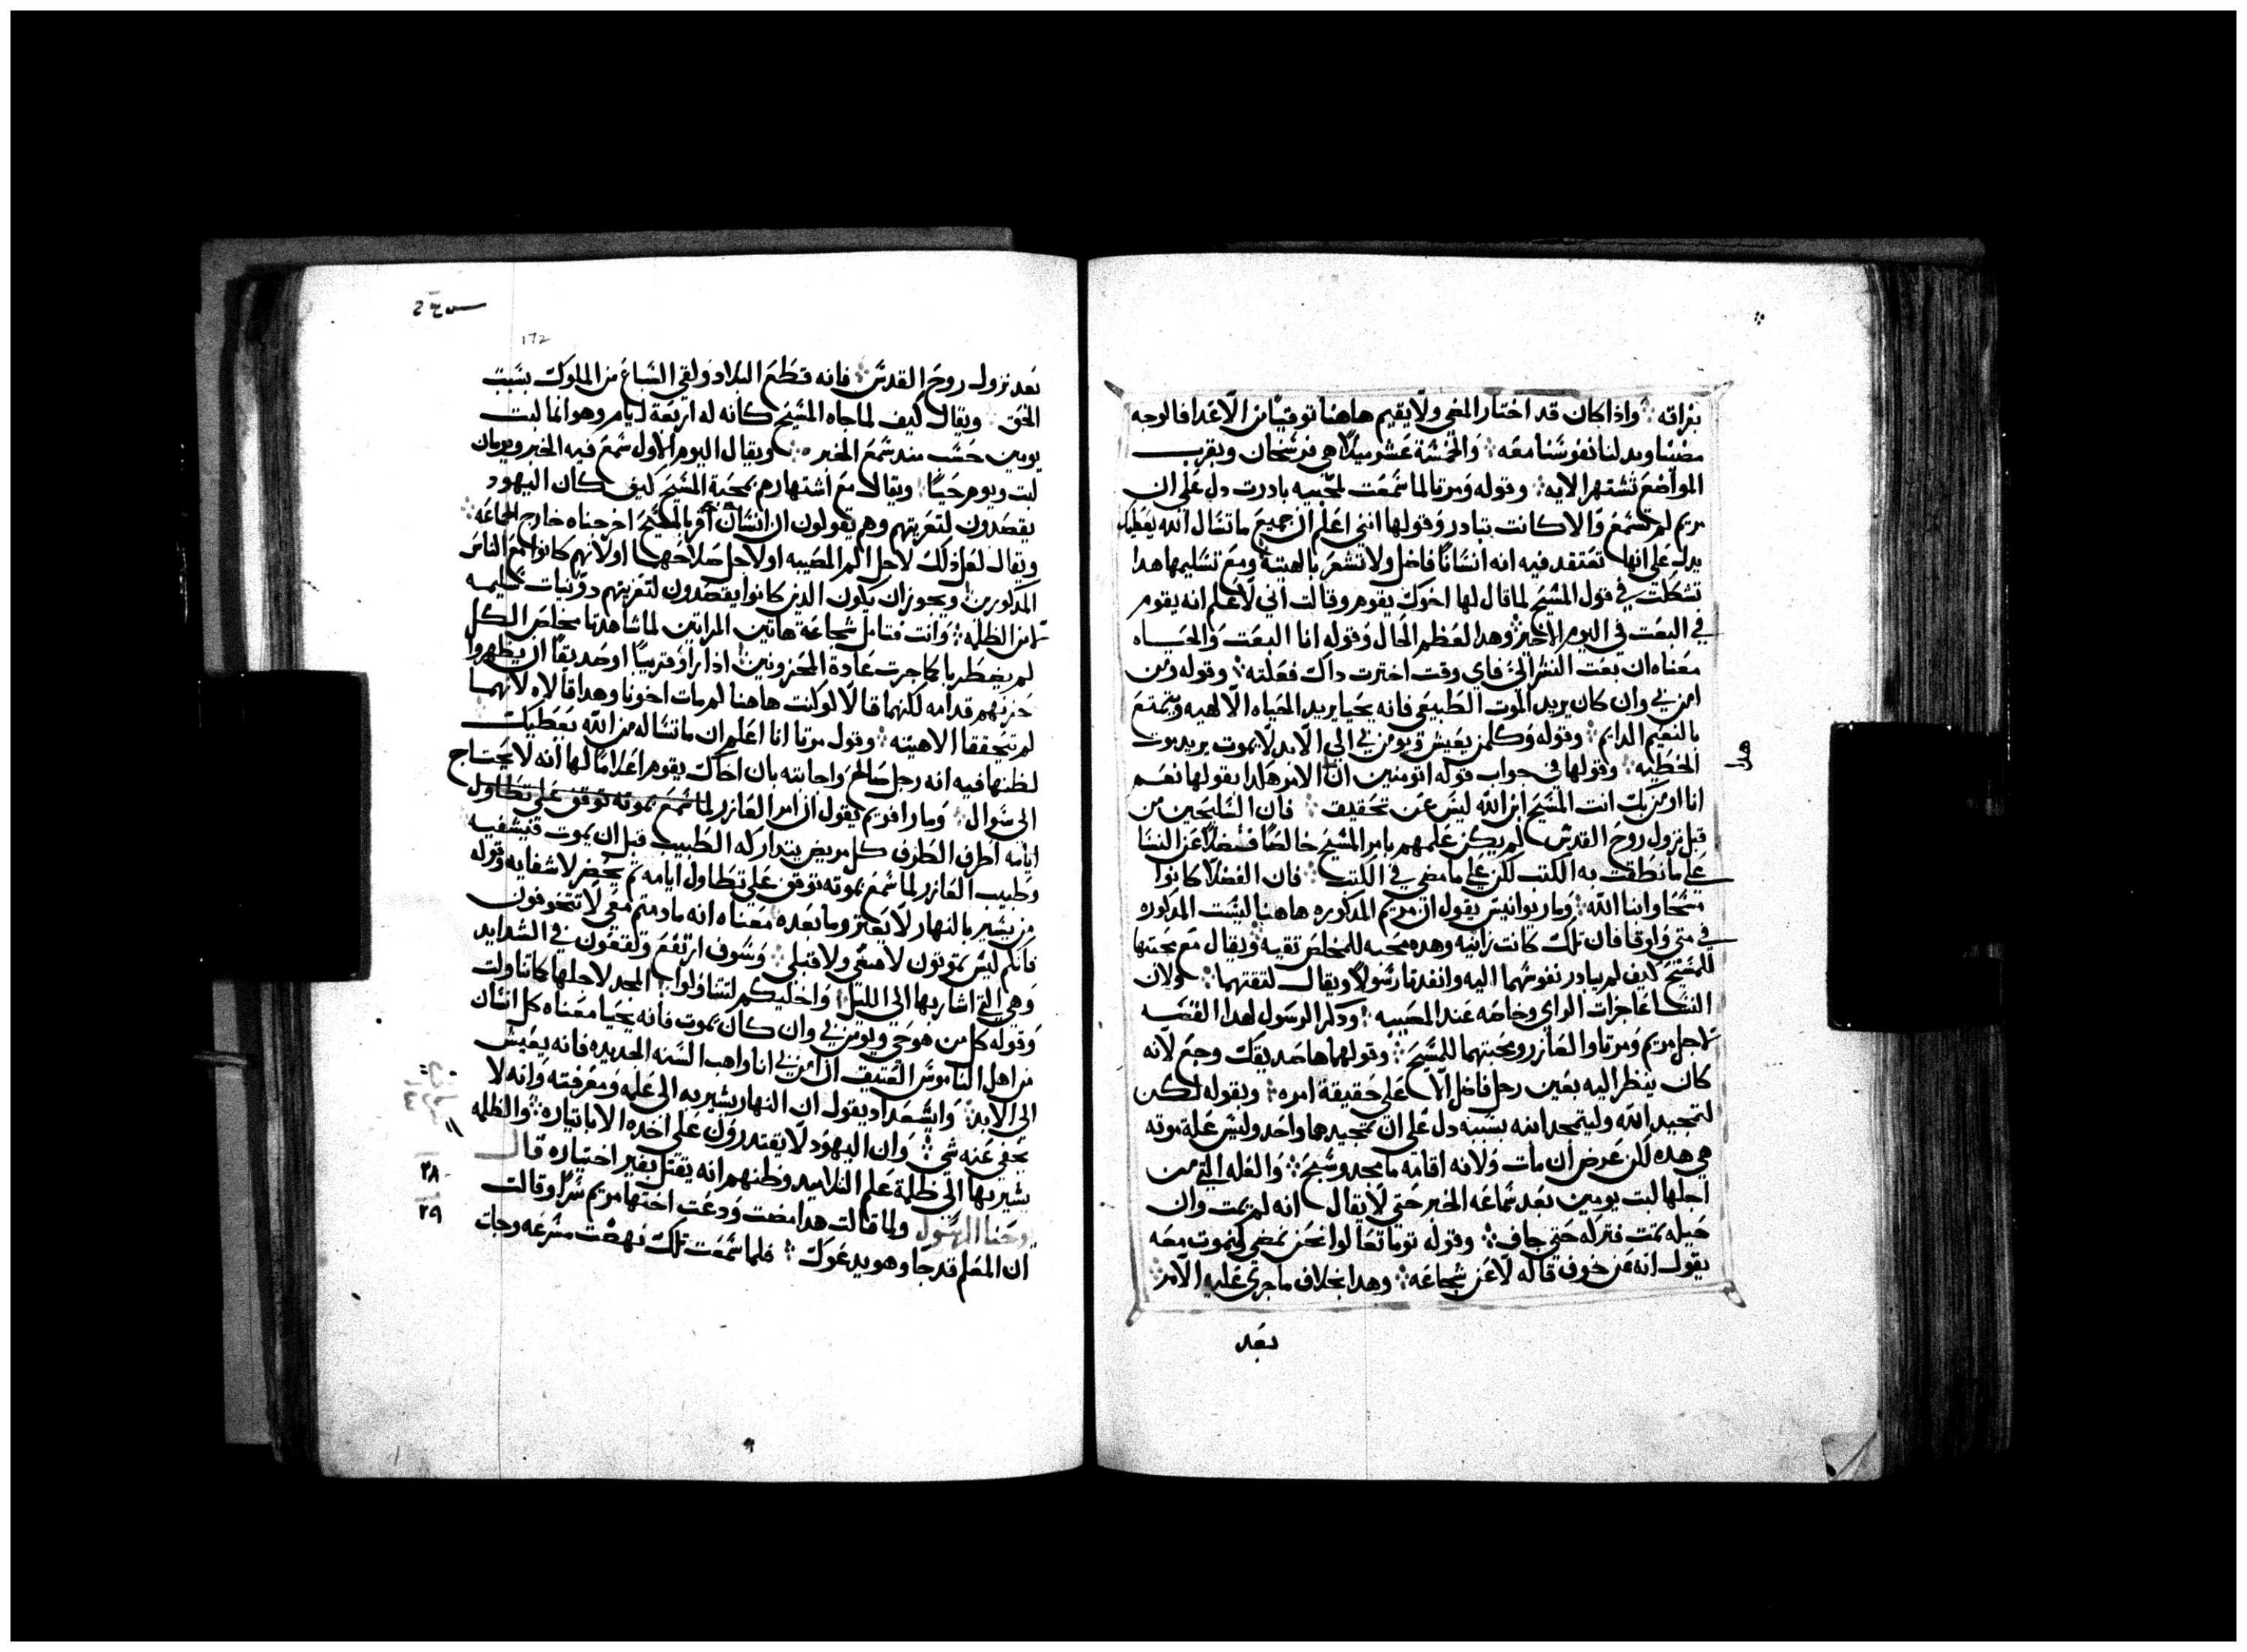 بغزاته ❖ واذا كان قد اختار المضي ولا يقيم هاهنا توقيًا من الاعدا فالوجه
مضينا وبدلنا نفوسنا معه ❖ والخمسة عشر ميلًا هي فرسخان وبقرب
المواضع تشتهر الايه ❖ وقوله ومرتا لما سمعت بمجيه بادرت دل على ان
مريم لم تسمع والا كانت تبادر وقولها انني اعلم ان جميع ما تسال الله يعطيك
يدل على انها تعتقد فيه انه انسانًا فاضل ولا تشعر بالهيته ومع تسليمها هدا
تشككت في قول المسيح لما قال لها اخوك يقوم وقالت اني لاعلم انه يقوم
في البعت في اليوم الاخير وهدا لعظم الحال وقوله انا البعت والحياه
معناه ان بعت البشر الي فاي وقت اخترت داك فعلته ❖ وقوله ومن
امن بي وان كان يريد الموت الطبيعي فانه يحيا يريد الحياه الالهيه ويتمتع
بالنعيم الدايم ❖ وقوله وكلمن يعيش ويومن بي الى الابد لا يموت يريد موت
الخطيه ❖ وقولها في جواب قوله اتومنين ان الامر هكدا بقولها نعم
هكدا
انا اومن بك انت المسيح ابن الله ليس عن تحقيق ❖ فان السليحين من
قبل نزول روح القدس لم يكن علمهم بامر المسيح خالصًا فضلًا عن النسا
على ما نطقت به الكتب لكن على ما مضى في الكتب ❖ فان الفضلا كانوا
مسحا وابنا الله ❖ ومار يوانيس يقول ان مريم المدكوره هاهنا ليست المدكوره
في متي ولوقا فان تلك كانت زانيه وهده محبه للمخلص تقيه ويقال مع محبتها
للمسيح كيف لم يبادر نفوسهما اليه وانفدتا رسولًا ويقال لثقتهما ❖ ولان
النسا عاجزات الراي وخاصه عند المصيبه ❖ ودكر الرسول لهدا القصه
لاجل مريم ومرتا والعازر ومحبتهما للمسيح ❖ وقولهما ها صديقك وجع لانه
كان ينظر اليه بعين رجل فاضل لا على حقيقة امره ❖ وبقوله لكن
لتمجيد الله وليتمجد ابنه بسببه دل على ان تمجيدهما واحد وليس علة موته
هي هده لكن عرض ان مات ولانه اقامه ما مجد وسبح ❖ والعله التي من
اجلها لبت يومين بعد سماعه الخبر حتى لا يقال انه لم يمت وان
حيله تمت فتركه حتى جاف ❖ وقوله توما تعالوا نحن نمضي كنموت معه
يقول انه عن خوف قاله لا عن شجاعه ❖ وهدا بخلاف ما جرى عليه الامر
بعد
172
بعد نزول روح القدس ❖ فانه قطع البلاد ولقي السباع من الملوك بسبب
الحق ❖ ويقال كيف لما جاه المسيح كانه له اربعة ايام وهو انما لبت
يومين حسب مند سمع الخبر ❖ ويقال اليوم الاول سمع فيه الخبر ويومان
لبت ويوم جيا ❖ ويقال مع اشتهارهم بمحبة المسيح كيف كان اليهود
يقصدون لتعزيتهم وهم يقولون ان انسان امر بالمسيح اخرجناه خارج الجماعه ❖
ويقال لعل دلك لاجل الم المصيبه او لاجل صلاحهما او لانهم كانوا مع الناس
المدكورين ويجوز ان يكون الدين كانوا يقصدون لتعزيتهم دوو نيات سليمه
من الظلمه ❖ وانت فتامل شجاعة هاتين المراتين لما شاهدتا مخلص الكل
لم يضطربا كما جرت عادة المحزونين ادا راوا قريبًا او صديقًا ان يظهروا
حزنهم قدامه لكنهما قالا لو كنت هاهنا لم مات اخونا وهدا قالاه لانهما
لم تحققا الاهيته ❖ وقول مرتا انا اعلم ان ما تساله من الله يعطيك
لظنها فيه انه رجل صالح واجابته بان اخاك يقوم اعلامًا لها انه لا يحتاج
الى سوال ❖ ومار افريم يقول ان امر العازر لما سمع بموته توقف على تطاول
ايامه اطرف الطرف كل مريض يتداركه الطبيب قبل ان يموت فيشفيه
وطبيب العازر لما سمع بموته توقف على تطاول ايامه تم يحضر لاشفايه وقوله
من يسير بالنهار لا يعثر وما بعده معناه انه ما دمتم معي لا تتخوفون
فانكم ليس تموتون لا معي ولا قبلي ❖ وسوف ارتفع وتقعون في الشدايد
وهي التي اشار بها الى الليل واخليكم لتتناولوا المجد لاجلها كما تاولت
وقوله كل من هو حي ويومن بي وان كان يموت فانه يحيا معناه كل انسان
من اهل الناموس العتيق ان امن بي انا واهب السنه الجديده فانه يعيش
الى الابد ❖ وايشعداد يقول ان النهار يشير به الى علمه ومعرفته وانه لا
يخفي عنه شي ❖ وان اليهود لا يقتدرون على اخده الا باتياره ❖ والظلمه
يشير بها الى ظلمة علم التلاميد وظنهم انه يقتل بغير اختياره قال
يوحنا الرسول ولما قالت هدا مضت ودعت اختها مريم سرًا وقالت
٢٨
ان المعلم قد جا وهو يدعوك ❖ فلما سمعت تلك نهضت مسرعه وجات
٢٩